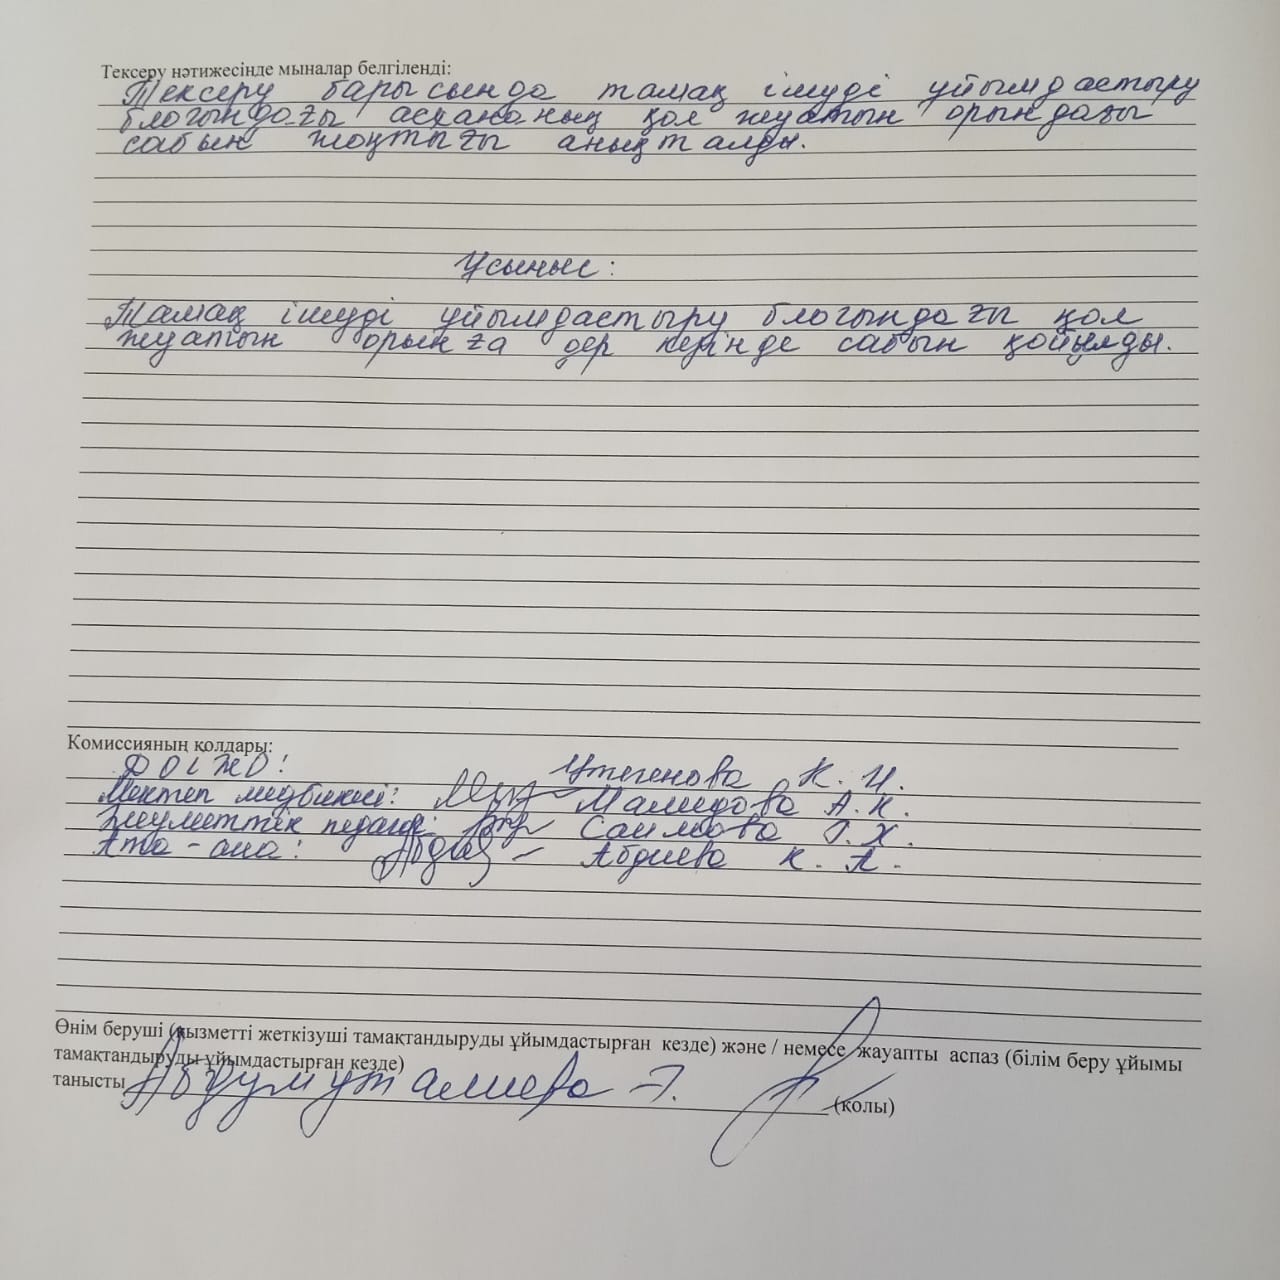 Тексеру нәтижесінде мыналар белгіленді:
Тексеру барысында тамақ ішуді ұйымдастыру
блогындағы асхананың қол жуатын орындағы
сабын жоқтығы анықталды.
Ұсыныс:
Тамақ ішуді ұйымдастыру блогындағы қол
жуатын орынға дер кезінде сабын қойылды.
Комиссияның қолдары:
Утегенова К. И.
Мектеп медбикесі: Мамедова А. К.
Әлеуметтік педагог: Саимова Г. Х.
Ата-ана: Абдиева К. А.
Өнім беруші (қызметті жеткізуші тамақтандыруды ұйымдастырған кезде) және / немесе жауапты аспаз (білім беру ұйымы
тамақтандыруды ұйымдастырған кезде)
танысты Абдумуталиева Э. (қолы)